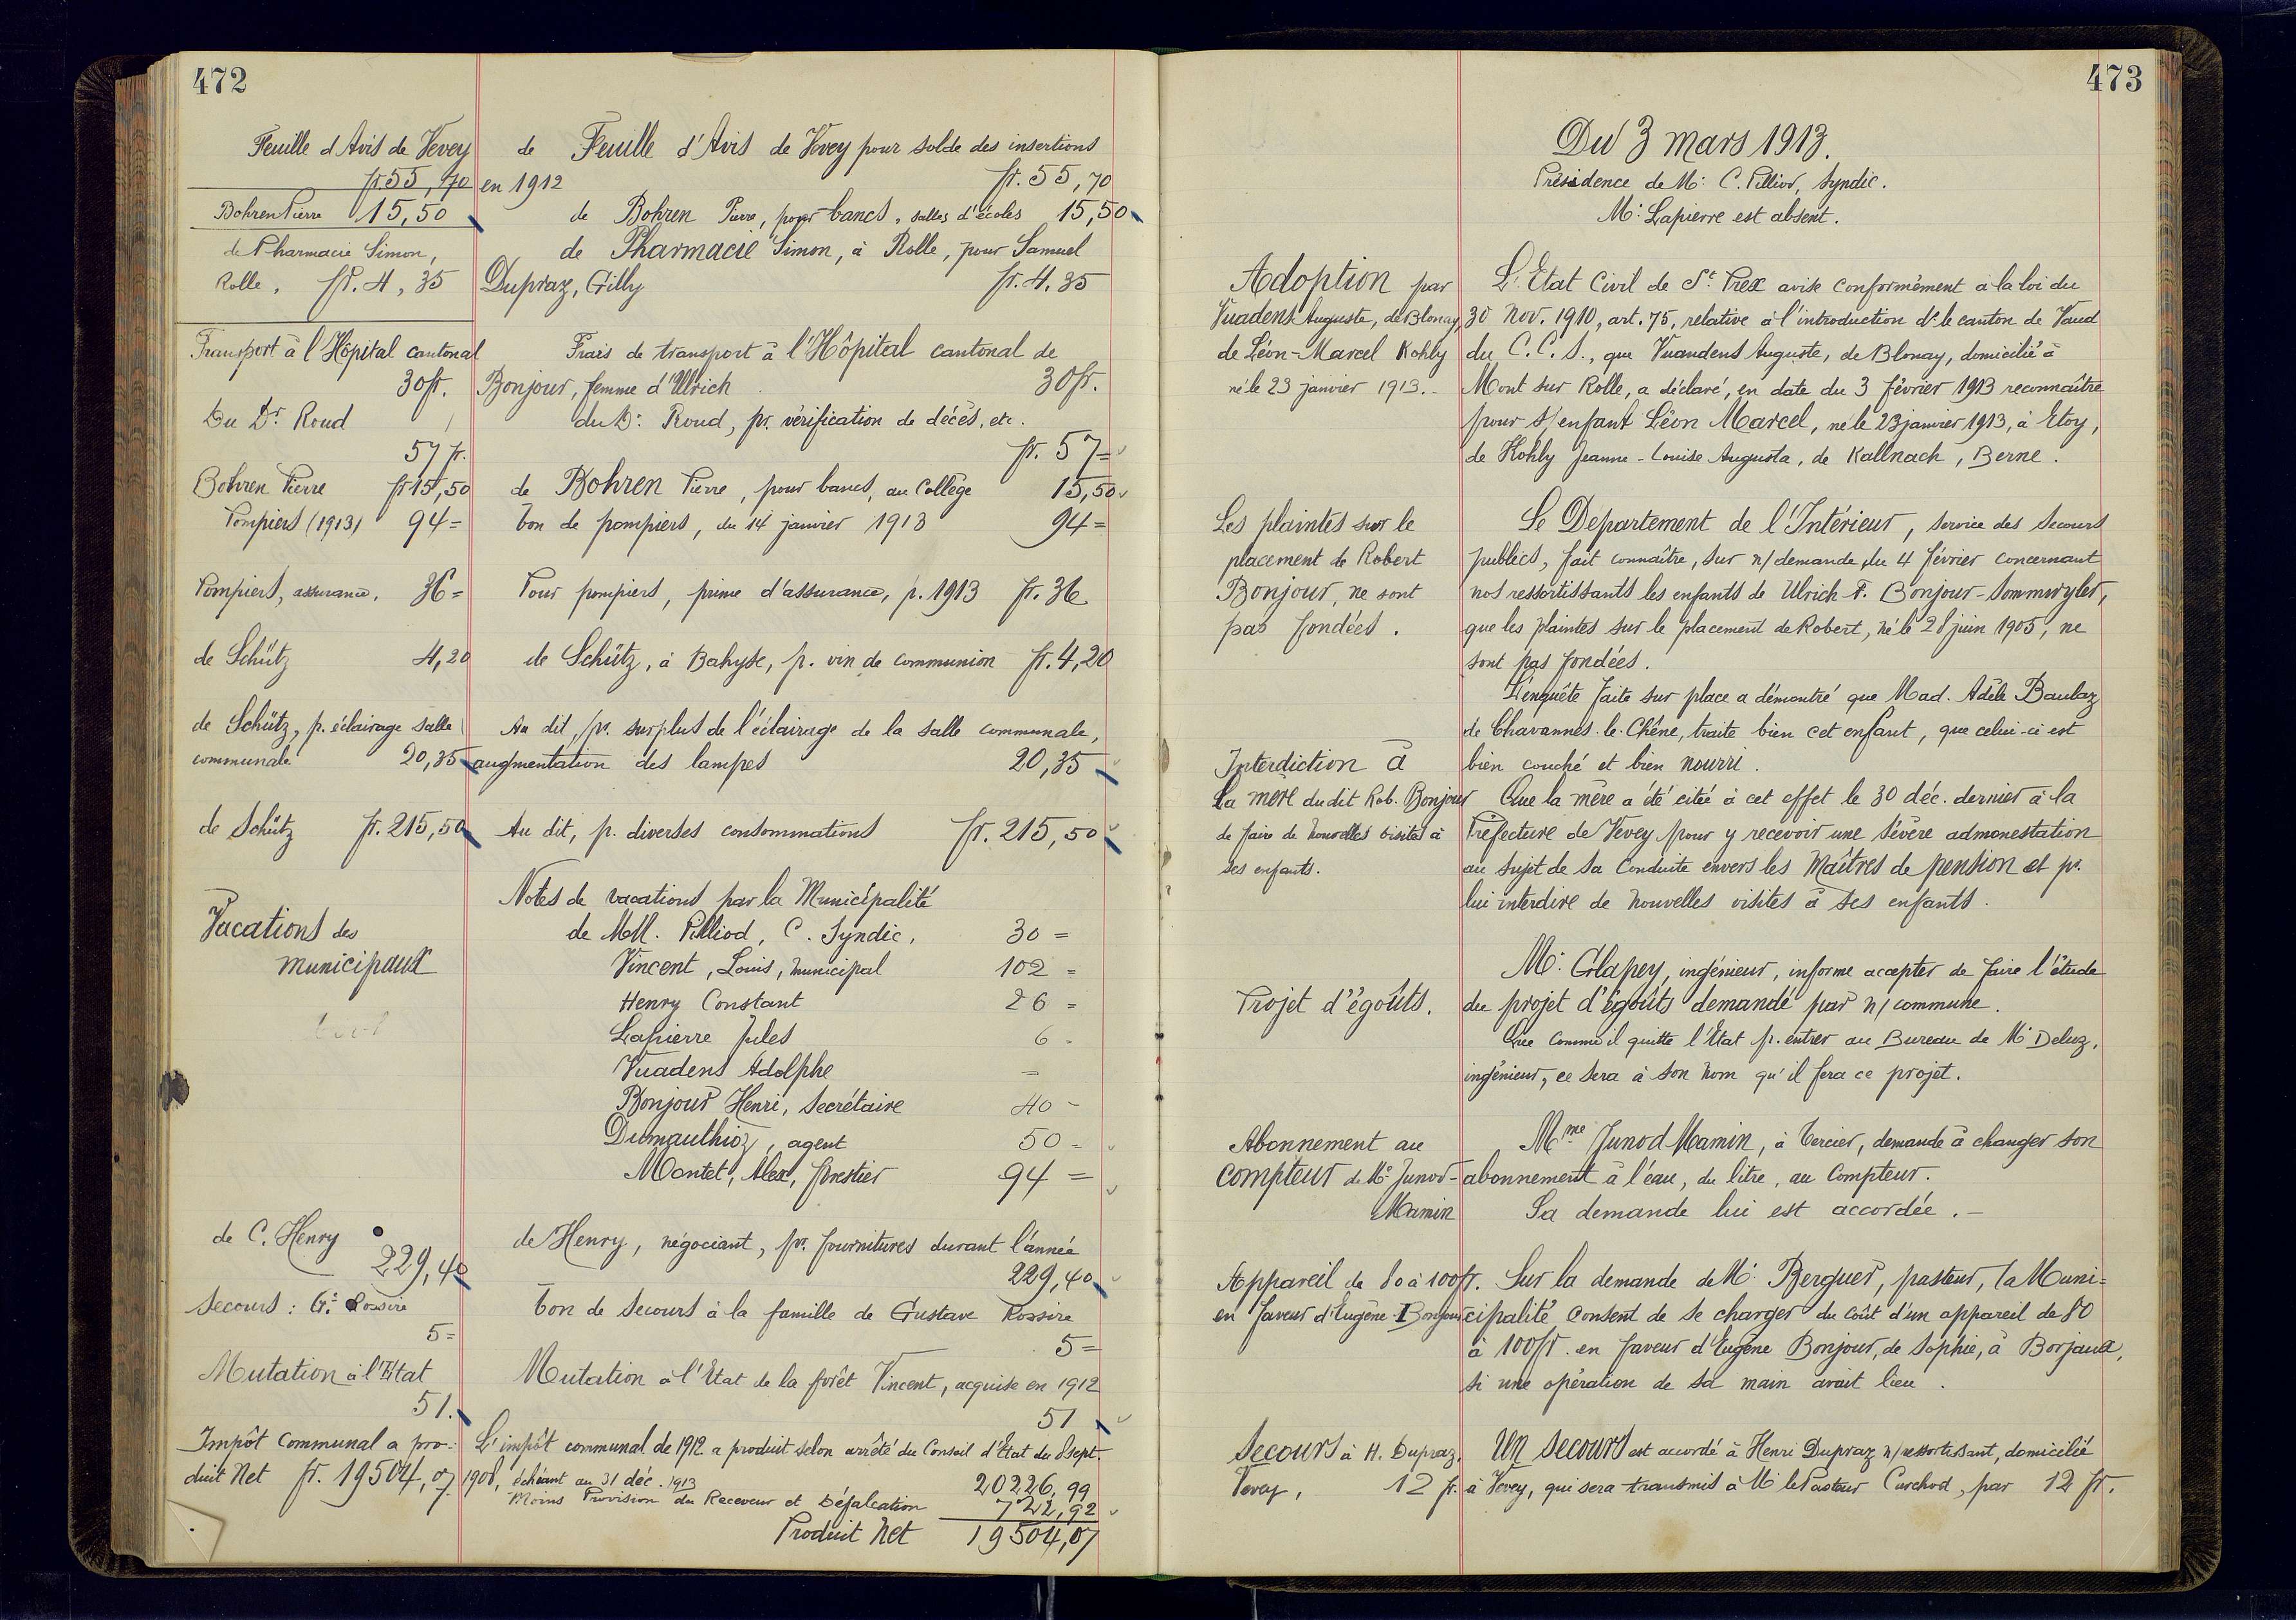 472
Feuille d'Avis de Vevey
fr. 55,70
Bohren Pierre 15,50
de Pharmacie Simon,
Rolle, fr. 4,35
Transport à l'Hôpital cantonal
30 fr.
Du Dr Roud
57 fr.
Bohren Pierre fr 15,50
Pompiers (1913) 94=
Pompiers, assurance, 36=
de Schütz 4,20
de Schütz, p. éclairage salle
communale 20,35
de Schütz fr. 215,50
Vacations des
municipaux
de C. Henry
229,40
Secours: G. Rossire
5=
Mutation à l'Etat
51.
Impôt communal a pro-
duit Net fr. 19504,07
de Feuille d'Avis de Vevey pour solde des insertions
en 1912 fr. 55,70
de Bohren Pierre, pour bancs, salles d'écoles 15,50
de Pharmacie Simon, à Rolle, pour Samuel
Dupraz, Gilly fr. 4,35
Frais de transport à l'Hôpital cantonal de
Bonjour, femme d'Ulrich 30 fr.
du Dr. Roud, pr. vérification de décès, etc.
fr. 57=
de Bohren Pierre, pour bancs, au Collège 15,50
bon de pompiers, du 14 janvier 1913 94=
Pour pompiers, prime d'assurance, p. 1913 fr. 36
de Schütz, à Bahyse, p. vin de communion fr. 4,20
Au dit, pr. surplus de l'éclairage de la salle communale,
augmentation des lampes 20,35
Au dit, p. diverses consommations fr. 215,50
Notes de vacations par la Municipalité
de MM. Pilliod, C. Syndic, 30 =
Vincent, Louis, municipal 102 =
Henry Constant 26 =
Lapierre Jules 6 -
Vuadens Adolphe =
Bonjour Henri, Secrétaire 40 -
Dumauthioz, agent 50 -
Montet, Alex, forestier 94 =
de Henry, négociant, pr. fournitures durant l'année
229,40
bon de Secours à la famille de Gustave Rossire
5=
Mutation à l'Etat de la forêt Vincent, acquise en 1912
51
L'impôt communal de 1912 a produit selon arrêté du Conseil d'Etat du 8 sept.
1908, échéant au 31 déc. 1913 20226,99
Moins Provision du Receveur et Défalcation 722,92
Produit Net 19504,07
473
Du 3 mars 1913.
Présidence de Mr. C. Pilliod, Syndic.
Mr. Lapierre est absent.
Adoption par
Vuadens Auguste, de Blonay,
de Léon-Marcel Kohly
né le 23 janvier 1913.-
L'Etat Civil de St Prex avise conformément à la loi du
30 Nov. 1910, art. 75, relative à l'introduction ds le canton de Vaud
du C. C. S., que Vuandens Auguste, de Blonay, domicilié à
Mont sur Rolle, a déclaré, en date du 3 février 1913 reconnaître
pour s/ enfant Léon Marcel, né le 23 janvier 1913, à Etoy,
de Kohly Jeanne-Louise Augusta, de Kallnach, Berne.
Les plaintes sur le
placement de Robert
Bonjour, ne sont
pas fondées.
Le Departement de l'Intérieur, service des Secours
publics, fait connaître, sur n/ demande du 4 février concernant
nos ressortissants les enfants de Ulrich F. Bonjour-Sommwyler,
que les plaintes sur le placement de Robert, né le 28 juin 1905, ne
sont pas fondées.
L'enquête faite sur place a démontré que Mad. Adèle Baulaz
de Chavannes-le-Chêne, traite bien cet enfant, que celui-ci est
bien couché et bien nourri.
Interdiction à
la mère du dit Rob. Bonjour
de faire de nouvelles visites à
ses enfants.
Que la mère a été citée à cet effet le 30 déc. dernier à la
Préfecture de Vevey pour y recevoir une sévère admonestation
au sujet de sa conduite envers les Maîtres de pension et pr.
lui interdire de nouvelles visites à ses enfants.
Projet d'égoûts.
Mr. Glapey, ingénieur, informe accepter de faire l'étude
du projet d'égoûts demandé par n/ commune.
Que comme il quitte l'Etat p. entrer au Bureau de Mr Deluz,
ingénieur, ce sera à son nom qu'il fera ce projet.
Abonnement au
compteur de Me Junod-
Mamin
Mme Junod Mamin, à Tercier, demande à changer son
abonnement à l'eau, du litre, au compteur.
Sa demande lui est accordée.-
Appareil de 80 à 100 fr.
en faveur d'Eugène Bonjour
Sur la demande de Mr. Berguer, pasteur, la Muni=
cipalité consent de se charger du coût d'un appareil de 80
à 100 fr. en faveur d'Eugène Bonjour, de Sophie, à Borjaux,
si une opération de sa main avait lieu.
Secours à H. Dupraz,
Vevey, 12 fr.
Un Secours est accordé à Henri Dupraz n/ ressortissant, domicilié
à Vevey, qui sera transmis à Mr le Pasteur Curchod, par 12 fr.